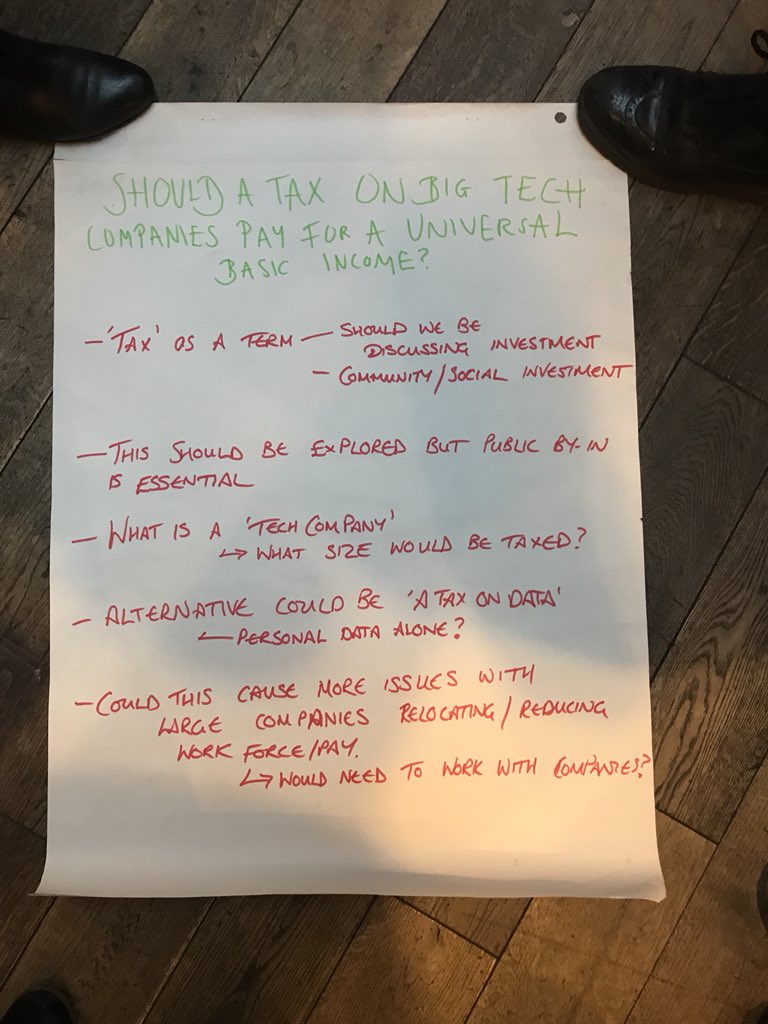 SHOULD A TAX ON BIG TECH
COMPANIES PAY FOR A UNIVERSAL
BASIC INCOME?
- 'TAX' AS A TERM - SHOULD WE BE
DISCUSSING INVESTMENT
- COMMUNITY/SOCIAL INVESTMENT
- THIS SHOULD BE EXPLORED BUT PUBLIC BY-IN
IS ESSENTIAL
- WHAT IS A 'TECH COMPANY'
↳ WHAT SIZE WOULD BE TAXED?
- ALTERNATIVE COULD BE 'A TAX ON DATA'
← PERSONAL DATA ALONE?
- COULD THIS CAUSE MORE ISSUES WITH
LARGE COMPANIES RELOCATING/REDUCING
WORK FORCE/PAY.
↳ WOULD NEED TO WORK WITH COMPANIES?